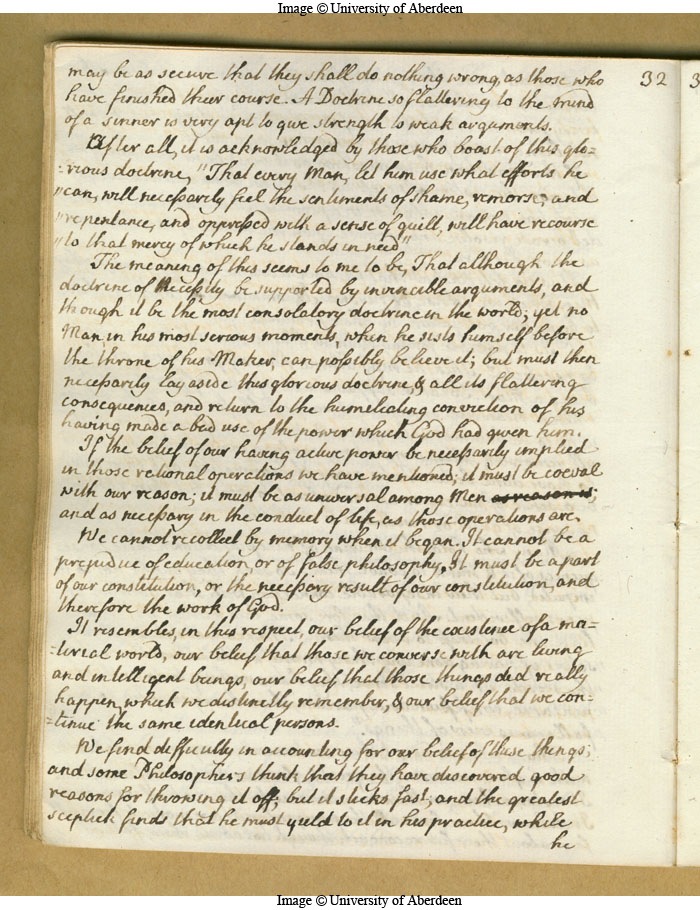 Image © University of Aberdeen
32
3
may be as secure that they shall do nothing wrong, as those who
have finished their course. A Doctrine so flattering to the mind
of a sinner is very apt to give strength to weak arguments.
After all, it is acknowledged by those who boast of this glo=
=rious doctrine, "That every Man, let him use what efforts he
"can, will necessarily feel the sentiments of shame, remorse, and
"repentance, and oppressed with a sense of guilt, will have recourse
"to that mercy of which he stands in need"
The meaning of this seems to me to be, That although the
doctrine of Necessity be supported by invincible arguments, and
though it be the most consolatory doctrine in the world; yet no
Man in his most serious moments, when he sists himself before
the throne of his Maker, can possibly believe it; but must then
necessarily lay aside this glorious doctrine, & all its flattering
consequences, and return to the humeliating conviction of his
having made a bad use of the power which God had given him.
If the belief of our having active power be necessarily implied
in those rational operations we have mentioned; it must be coeval
with our reason; it must be as universal among Men as reason is;
and as necessary in the conduct of life, as those operations are.
We cannot recollect by memory when it began. It cannot be a
prejudice of education, or of false philosophy. It must be a part
of our constitution, or the necessary result of our constitution, and
therefore the work of God.
It resembles, in this respect, our belief of the existence of a ma=
=terial world, our belief that those we converse with are living
and intelligent beings, our belief that those things did really
happen which we distinctly remember, & our belief that we con=
=tinue the same identical persons.
We find difficulty in accounting for our belief of these things;
and some Philosophers think that they have discovered good
reasons for throwing it off; but it sticks fast, and the greatest
sceptick finds that he must yield to it in his practice, while
he
Image © University of Aberdeen